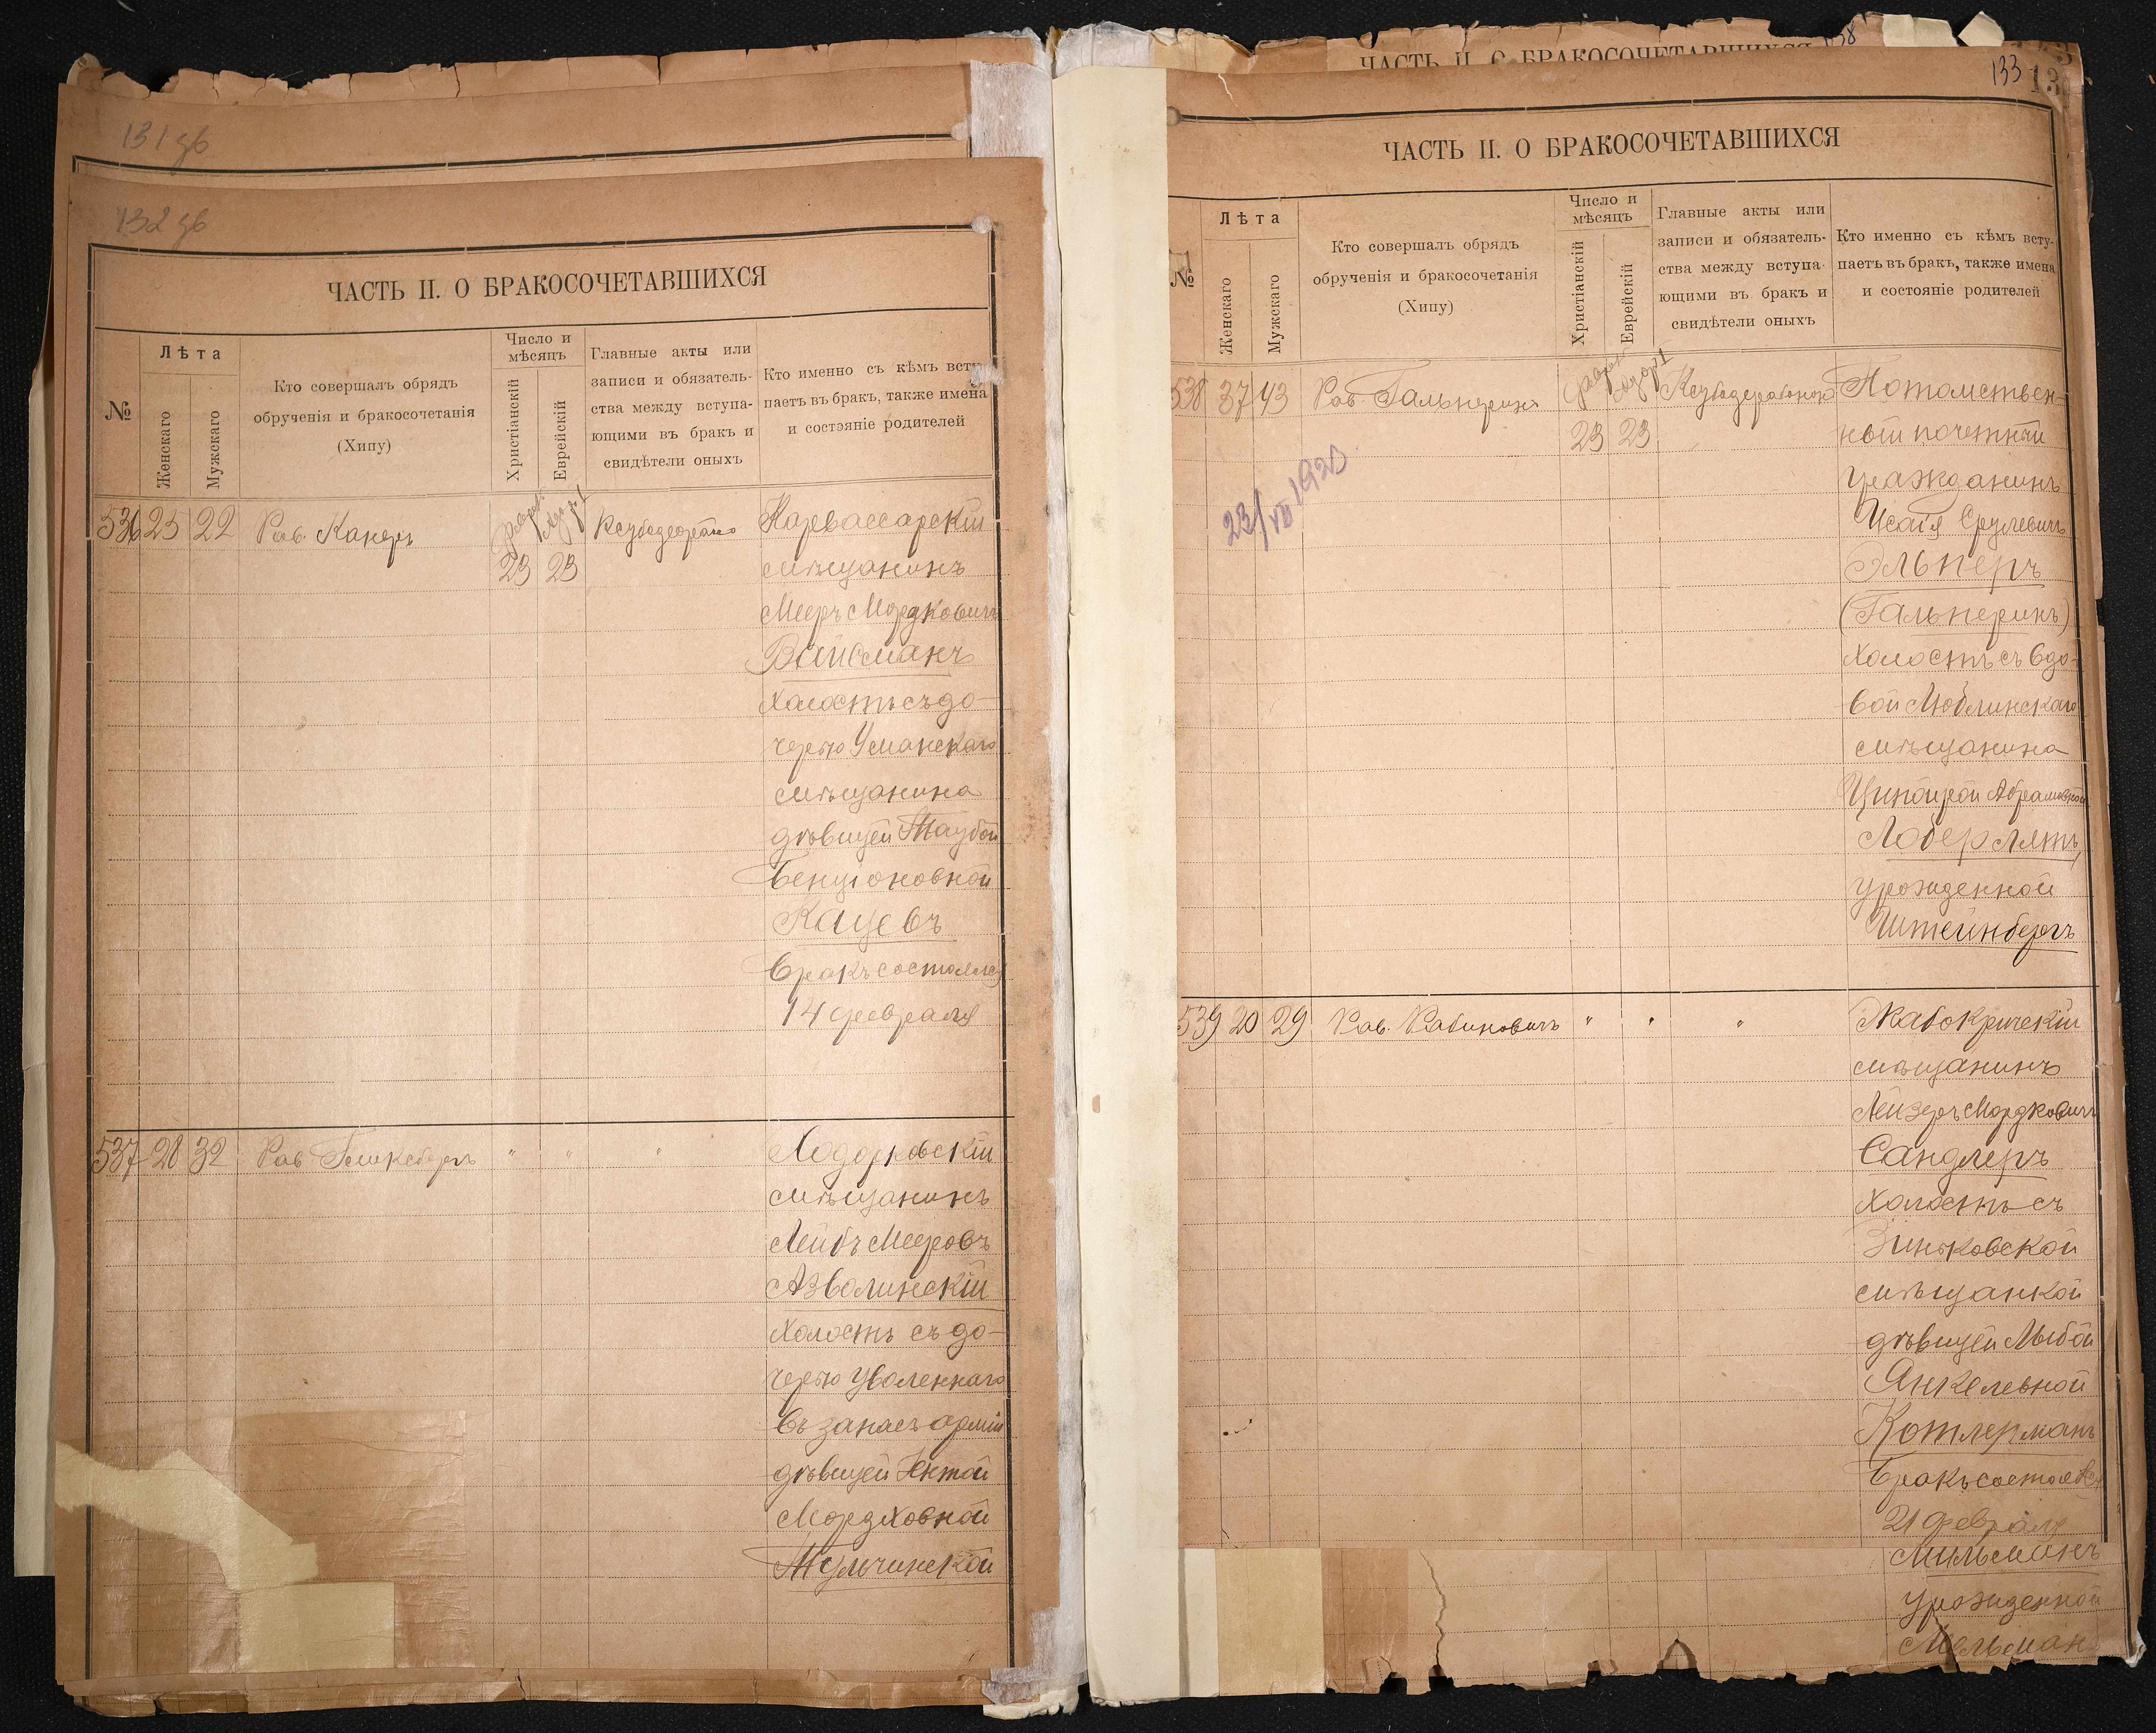 131 зв
132 зв
ЧАСТЬ II. О БРАКОСОЧЕТАВШИХСЯ
№
Лѣта
Женскаго
Мужскаго
Кто совершалъ обрядъ
обрученія и бракосочетанія
(Хипу)
Число и
мѣсяцъ
Христіанскій
Еврейскій
Главные акты или
записи и обязатель-
ства между вступа-
ющими въ бракъ и
свидѣтели оныхъ
Кто именно съ кѣмъ всту-
паетъ въ бракъ, также имена
и состояніе родителей
536 25 22 Рав. Канеръ
23 23
Карвасарскій
мѣщанинъ
Мееръ Мордковичъ
Вайсманъ
холостъ съ до-
черью Уманскаго
мѣщанина
дѣвицей Таубой
Бенціоновной
Кацевъ
Бракъ состоялся
14 февраля
537 28 32 Рав " " "
Ходорковскій
мѣщанинъ
Лейбъ Мееровъ
Азволинскій
холостъ съ до-
черью уволеннаго
въ запасъ арміи
дѣвицей Ентой
Мордховной
Тульчинской
ЧАСТЬ II. О БРАКОСОЧЕТАВШИХСЯ
133
ЧАСТЬ II. О БРАКОСОЧЕТАВШИХСЯ
№
Лѣта
Женскаго
Мужскаго
Кто совершалъ обрядъ
обрученія и бракосочетанія
(Хипу)
Число и
мѣсяцъ
Христіанскій
Еврейскій
Главные акты или
записи и обязатель-
ства между вступа-
ющими въ бракъ и
свидѣтели оныхъ
Кто именно съ кѣмъ всту-
паетъ въ бракъ, также имена
и состояніе родителей
538 37 43 Рав. Гальперинъ
23 23
23/VII 1923
Потомствен-
ный почетный
гражданинъ
Исаія Срулевичъ
Эльперъ
(Гальперинъ)
холостъ съ вдо-
вой Люблинскаго
мѣщанина
Ципойрой Абрамовной
Лоберлятъ,
урожденной
Штейнбергъ
539 20 29 Рав. Рабиновичъ " " "
Жабокричскій
мѣщанинъ
Лейзеръ Мордковичъ
Сандлеръ
холостъ съ
Зиньковской
мѣщанкой
дѣвицей Лыбой
Янкелевной
Котлерманъ
Бракъ состоялся
21 февраля
Мильманъ
урожденной
Мельман